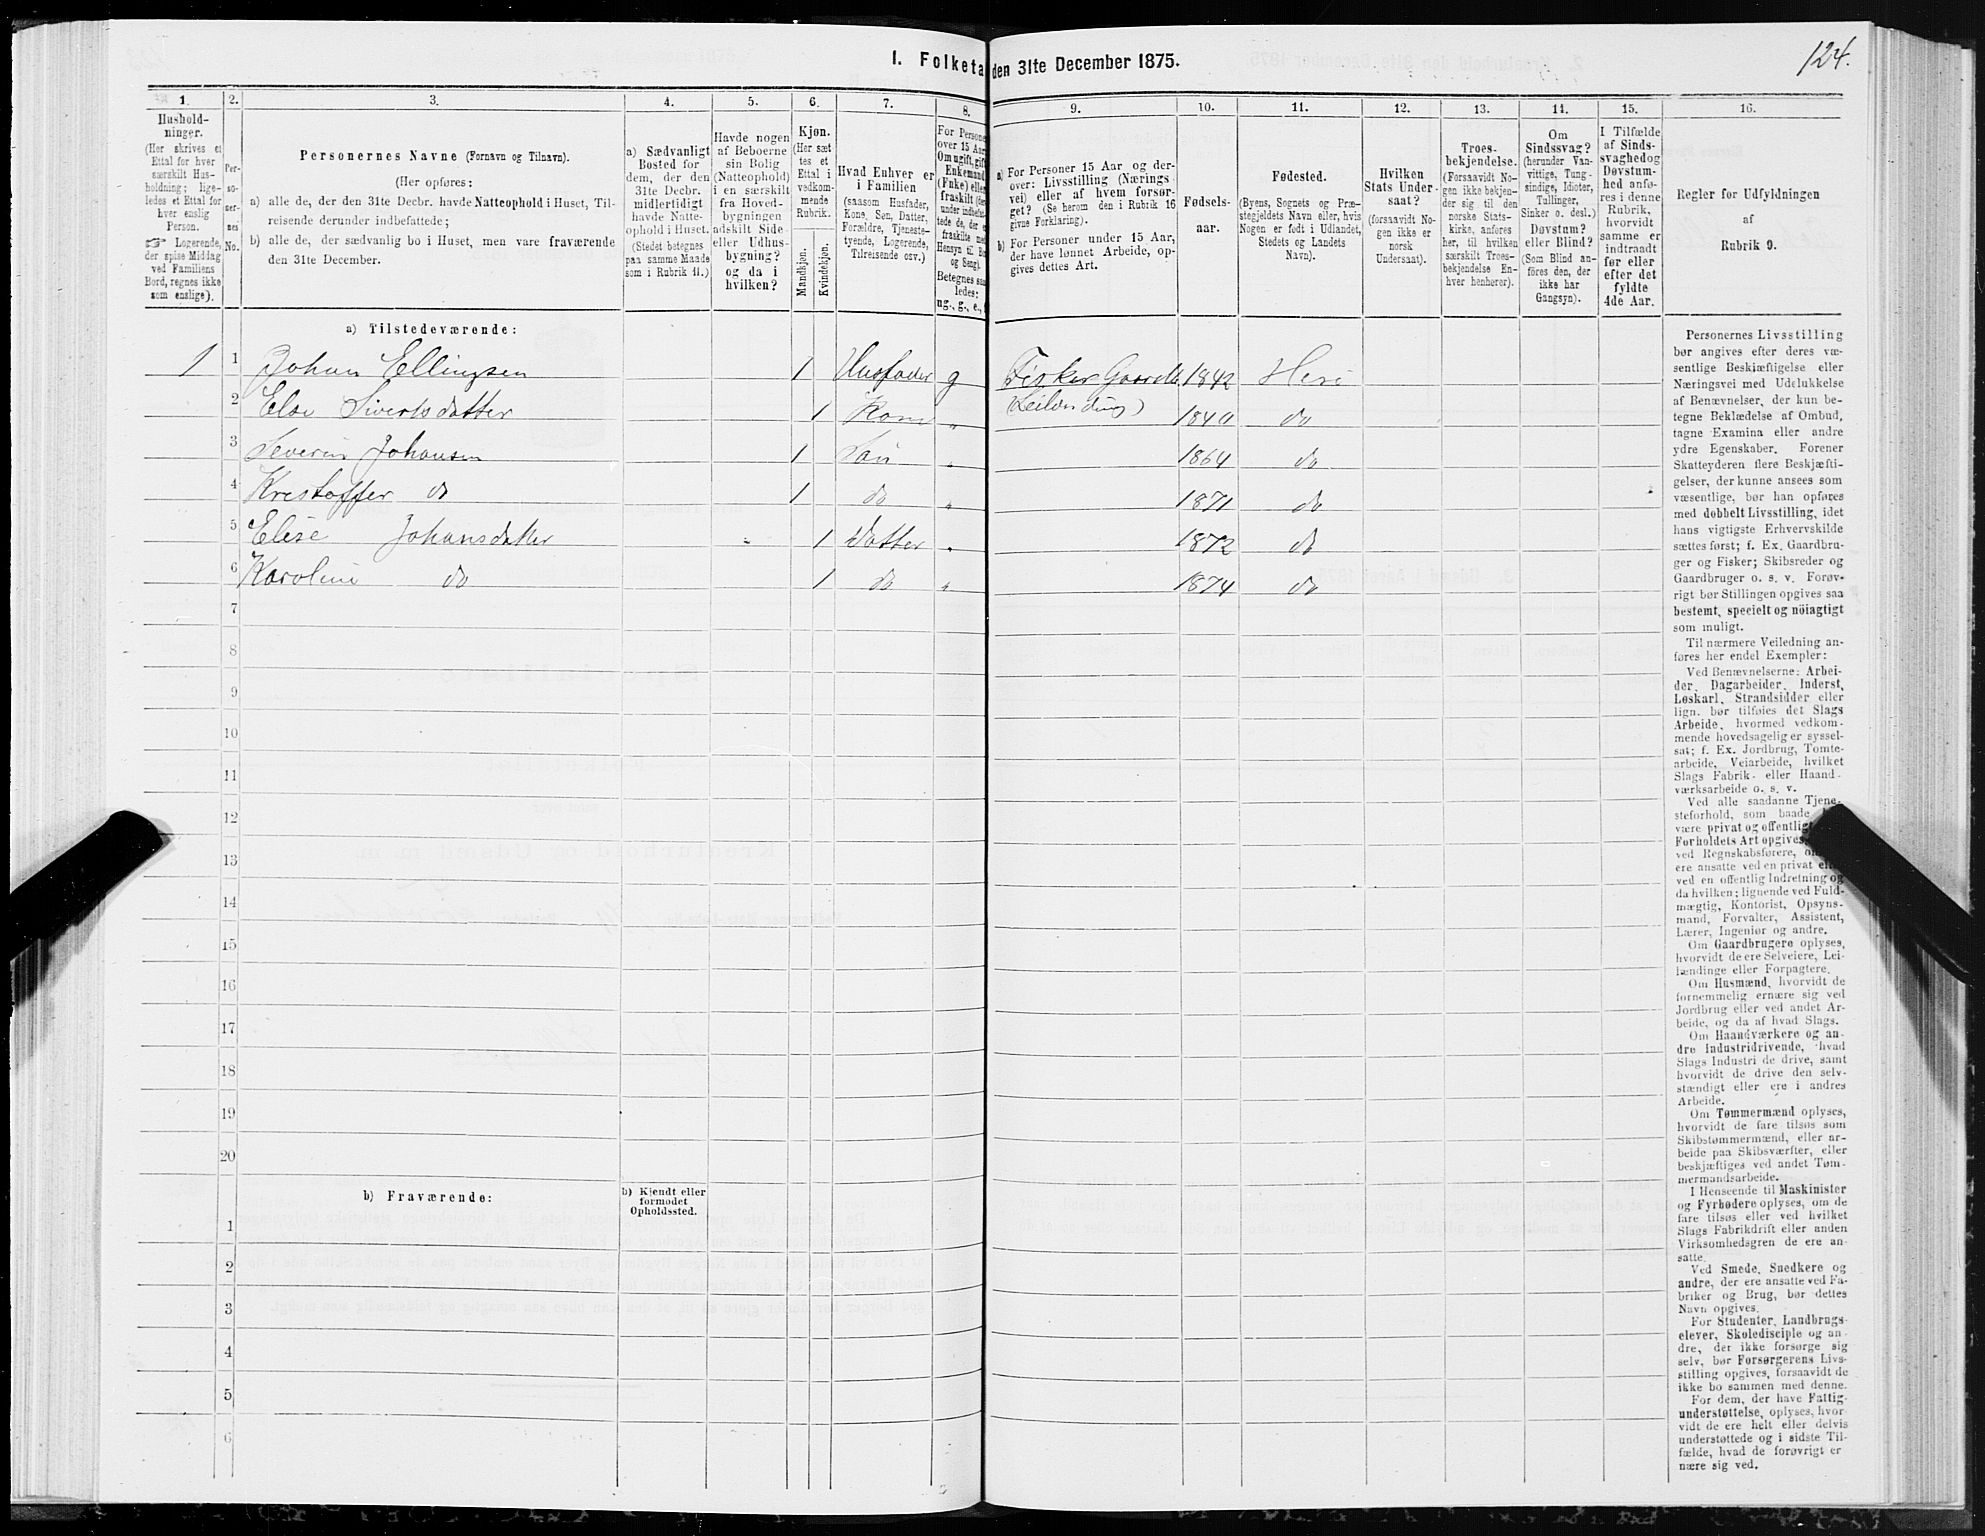 124.
1. Folketa den 31te December 1875.
1. 2. 3. 4. 5. 6. 7. 8. 9. 10. 11. 12. 13. 14. 15. 16.
Hushold-
ninger.
(Her skrives et
Ettal for hver
særskilt Hus-
holdning; lige-
ledes et Ettal for
hver enslig
Person.
☞ Logerende,
der spise Middag
ved Familiens
Bord, regnes ikke
som enslige).
Per-
so-
ner-
nes
No.
Personernes Navne (Fornavn og Tilnavn).
(Her opføres:
a) alle de, der den 31te Decbr. havde Natteophold i Huset, Til-
reisende derunder indbefattede;
b) alle de, der sædvanlig bo i Huset, men vare fraværende
den 31te December.
a) Sædvanligt
Bosted for
dem, der den
31te Decbr.
midlertidigt
havde Natte-
ophold i Huset.
(Stedet betegnes
paa samme Maade
som i Rubrik 11.)
Havde nogen
af Beboerne
sin Bolig
(Natteophold)
i en særskilt
fra Hoved-
bygningen
adskilt Side-
eller Udhus-
bygning?
og da i
hvilken?
Kjøn.
(Her sæt-
tes et
Ettal i
vedkom-
mende
Rubrik.
Mandkjøn.
Kvindekjøn.
Hvad Enhver er
i Familien
(saasom Husfader,
Kone, Søn, Datter,
Forældre, Tjeneste-
tyende, Logerende,
Tilreisende osv.)
For Persone
over 15 Aar
Om ugift, gift
Enkemand
(Enke) eller
fraskilt (de
under indbefat-
tede de, der e
fraskilte med
Hensyn til Bo
og Seng).
Betegnes saa
ledes:
ug., g., e.,
a) For Personer 15 Aar og der-
over: Livsstilling (Nærings-
vei) eller af hvem forsør-
get? (Se herom den i Rubrik 16
givne Forklaring).
b) For Personer under 15 Aar,
der have lønnet Arbeide, op-
gives dettes Art.
Fødsels-
aar.
Fødested.
(Byens, Sognets og Præ-
stegjeldets Navn eller, hvis
Nogen er født i Udlandet,
Stedets og Landets
Navn).
Hvilken
Stats Under-
saat?
(forsaavidt No-
gen ikke er
norsk
Undersaat).
Troes-
bekjendelse.
(Forsaavidt No-
gen ikke bekjen-
der sig til den
norske Stats-
kirke, anføres
her, til hvilken
særskilt Troes-
bekjendelse En-
hver henhører).
Om
Sindssvag?
(herunder Van-
vittige, Tung-
sindige, Idioter,
Tullinger,
Sinker o. desl.)
Døvstum?
eller Blind?
(Som Blind an-
føres den, der
ikke har
Gangsyn).
I Tilfælde
af Sinds-
svaghed og
Døvstum-
hed anfø-
res i denne
Rubrik,
hvorvidt
samme er
indtraadt
før eller
efter det
fyldte
4de Aar.
Regler for Udfyldningen
af
Rubrik 9.
a) Tilstedeværende:
1 1 Johan Ellingsen 1 Husfader g Fisker Gaardb. 1842 Herö
2 Else Sivertsdatter 1 Kone „ (Leilænding) 1840 do
3 Severin Johansen 1 Søn „ 1864 do
4 Krestoffer do 1 do „ 1871 do
5 Elise Johansdatter 1 Datter „ 1872 do
6 Karoline do 1 do „ 1874 do
7
8
9
10
11
12
13
14
15
16
17
18
19
20
b) Fraværende:
b) Kjendt eller
formodet
Opholdssted.
1
2
3
4
5
6
Personernes Livsstilling
bør angives efter deres væ-
sentlige Beskjæftigelse eller
Næringsvei med Udelukkelse
af Benævnelser, der kun be-
tegne Beklædelse af Ombud,
tagne Examina eller andre
ydre Egenskaber. Forener
Skatteyderen flere Beskjæfti-
gelser, der kunne ansees som
væsentlige, bør han opføres
med dobbelt Livsstilling, idet
hans vigtigste Erhvervskilde
sættes først; f. Ex. Gaardbru-
ger og Fisker; Skibsreder og
Gaardbruger o. s. v. Forøv-
rigt bør Stillingen opgives saa
bestemt, specielt og nöiagtigt
som muligt.
Til nærmere Veiledning an-
føres her endel Exempler:
Ved Benævnelserne: Arbei-
der, Dagarbeider, Inderst,
Løskarl, Strandsidder eller
lign. bør tilføies det Slags
Arbeide, hvormed vedkom-
mende hovedsagelig er syssel-
sat; f. Ex. Jordbrug, Tomte-
arbeide, Veiarbeide, hvilket
Slags Fabrik- eller Haand-
værksarbeide o. s. v.
Ved alle saadanne Tjene-
steforhold, som baade
være privat og offentlig
Forholdets Art opgives,
ved Regnskabsførere,
ere ansatte ved en privat
ved en offentlig Indretning og
da hvilken; lignende ved Fuld-
mægtig, Kontorist, Opsyns-
mand, Forvalter, Assistent,
Lærer, Ingeniør og andre.
Om Gaardbrugere oplyses,
hvorvidt de ere Selveiere, Lei-
lændinge eller Forpagtere.
Om Husmænd, hvorvidt de
fornemmelig ernære sig ved
Jordbrug eller ved andet Ar-
beide, og da af hvad Slags.
Om Haandværkere og an-
dre Industridrivende, hvad
Slags Industri de drive, samt
hvorvidt de drive den selv-
stændigt eller ere i andres
Arbeide.
Om Tømmermænd oplyses,
hvorvidt de fare tilsøs som
Skibstømmermænd, eller ar-
beide paa Skibsværfter, eller
beskjæftiges ved andet Tøm-
mermandsarbeide.
I Henseende til Maskinister
og Fyrbødere oplyses, om de
fare tilsøs eller ved hvilket
Slags Fabrikdrift eller anden
Virksomhedsgren de ere an-
satte.
Ved Smede, Snedkere og
andre, der ere ansatte ved Fa-
briker og Brug, bør dettes
Navn opgives.
For Studenter, Landbrugs-
elever, Skoledisciple og an-
dre, der ikke forsørge sig
selv, bør Forsørgerens Livs-
stilling opgives, forsaavidt de
ikke bo sammen med denne.
For dem, der have Fattig-
understøttelse, oplyses, hvor-
vidt de ere helt eller delvis
understøttede og i sidste Til-
fælde, hvad de forøvrigt er
nære sig ved.